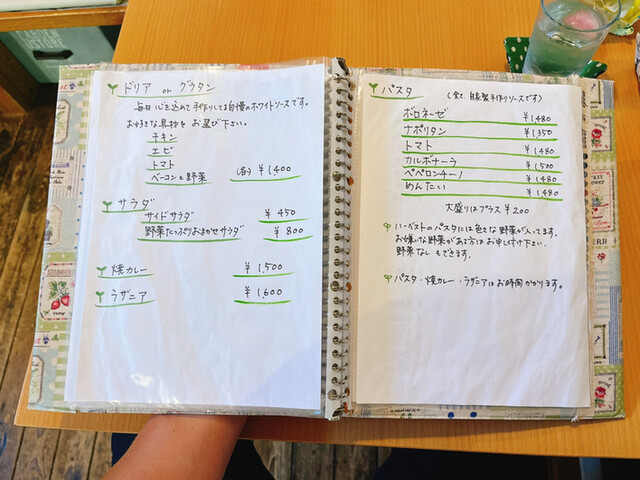 ドリア or グラタン
毎日 心を込めて手作りしてる自慢のホワイトソースです。
お好きな具材を お選び下さい。
チキン
エビ
トマト
ベーコンと野菜 (各) ¥1,400
サラダ
サイドサラダ ¥450
野菜たっぷりおまかせサラダ ¥800
焼カレー ¥1,500
ラザニア ¥1,600
パスタ (全て、自家製手作りソースです)
ボロネーゼ ¥1,480
ナポリタン ¥1,350
トマト ¥1,480
カルボナーラ ¥1,500
ペペロンチーノ ¥1,480
めんたい ¥1,480
大盛りはプラス ¥200
ハーベストのパスタには色々な野菜が入ってます。
お嫌いな野菜がある方はお申し付け下さい。
野菜なしもできます。
パスタ・焼カレー・ラザニアはお時間かかります。